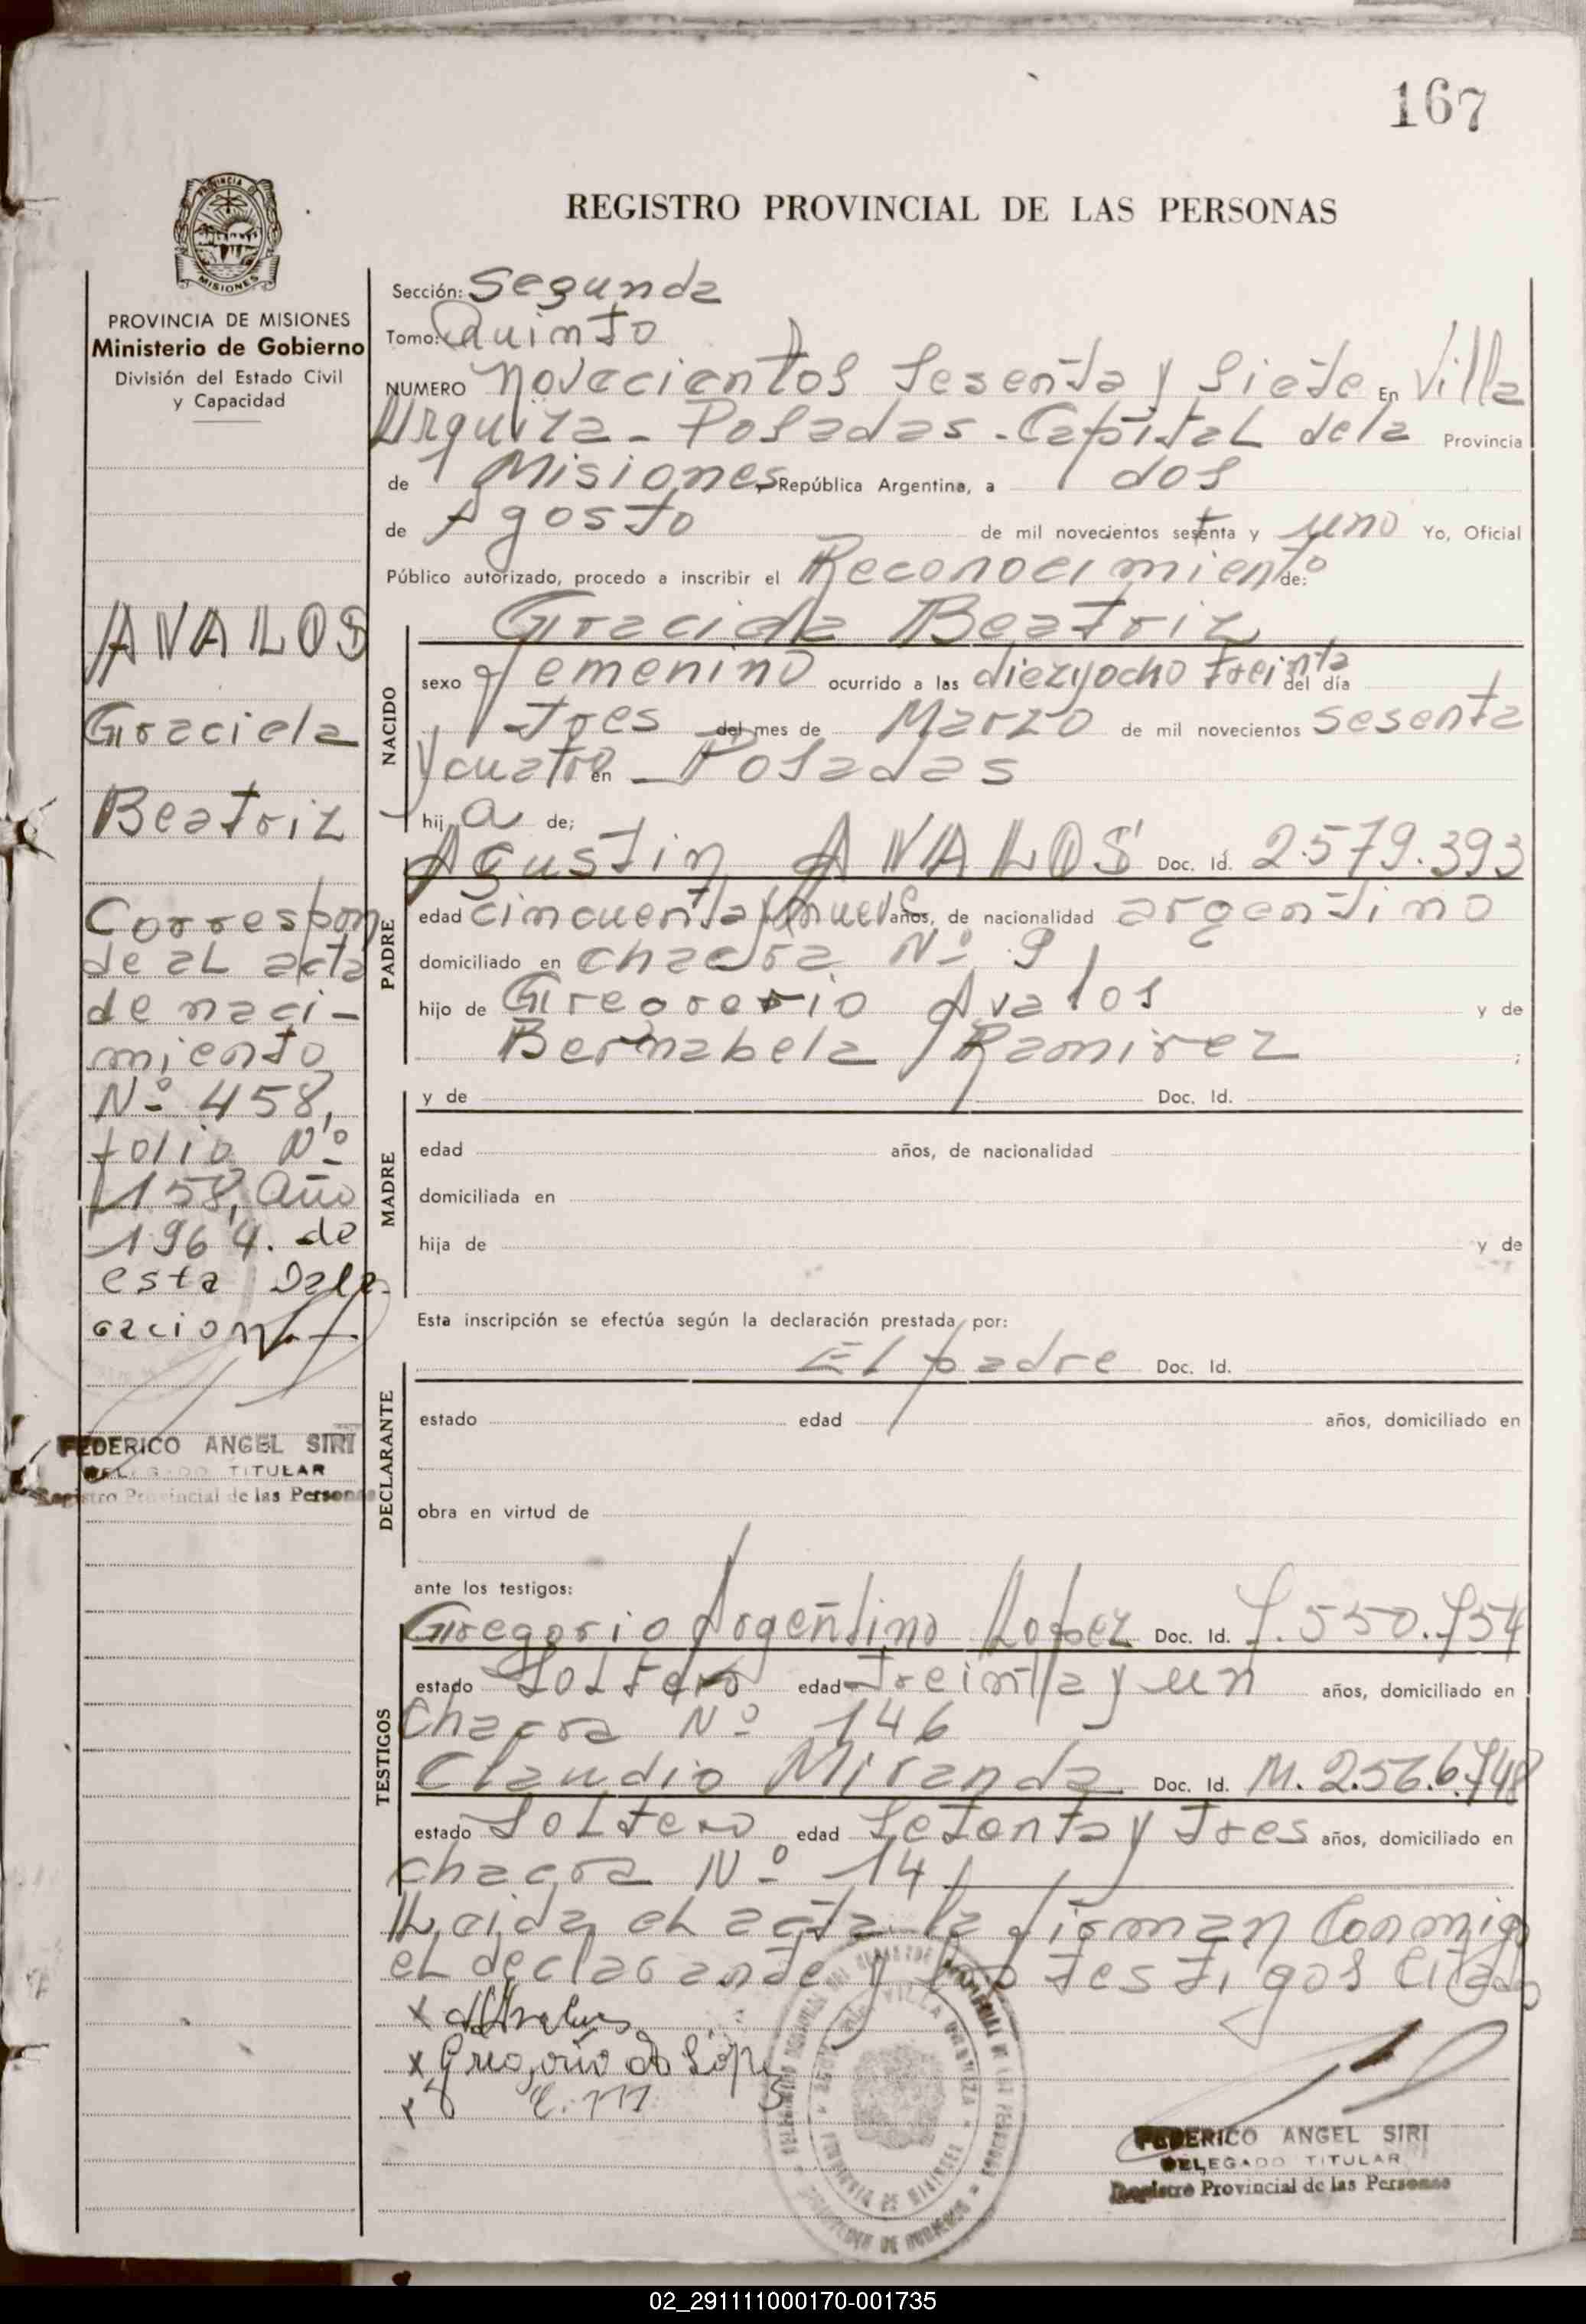 167
REGISTRO PROVINCIAL DE LAS PERSONAS
PROVINCIA DE MISIONES
Ministerio de Gobierno
División del Estado Civil
y Capacidad
AVALOS
Graciela
Beatriz
Correspon
de al acta
de naci-
miento
Nº 458,
folio Nº
158, Año
1964. de
esta Dele
gacion.
FEDERICO ANGEL SIRI
DELEGADO TITULAR
Registro Provincial de las Personas
Sección: Segunda
Tomo: Quinto
NUMERO Novecientos Sesenta y Siete En Villa
Urquiza - Posadas - Capital de la Provincia
de Misiones República Argentina, a dos
de Agosto de mil novecientos setenta y uno Yo, Oficial
Público autorizado, procedo a inscribir el Reconocimiento de:
Graciela Beatriz
NACIDO
sexo femenino ocurrido a las diezyocho treinta del día
tres del mes de Marzo de mil novecientos sesenta
y cuatro en - Posadas
hij a de;
PADRE
Agustin AVALOS Doc. Id. 2.579.393
edad cincuenta y nueve años, de nacionalidad argentino
domiciliado en chacra Nº 9
hijo de Gregorio Avalos y de
Bernabela Ramirez ;
MADRE
y de Doc. Id.
edad años, de nacionalidad
domiciliada en
hija de y de
Esta inscripción se efectúa según la declaración prestada por:
DECLARANTE
El padre Doc. Id.
estado edad años, domiciliado en
obra en virtud de
ante los testigos:
TESTIGOS
Gregorio Argentino Lopez Doc. Id. 7.550.754
estado Soltero edad Treinta y un años, domiciliado en
Chacra Nº 146
Claudio Miranda Doc. Id. M. 2.566.748
estado Soltero edad Setenta y Tres años, domiciliado en
chacra Nº 14
Leida el acta la firman Conmigo
el declarante y los testigos Citados
x A Avalos
x Gregorio A López
x C. M
FEDERICO ANGEL SIRI
DELEGADO TITULAR
Registro Provincial de las Personas
02_291111000170-001735